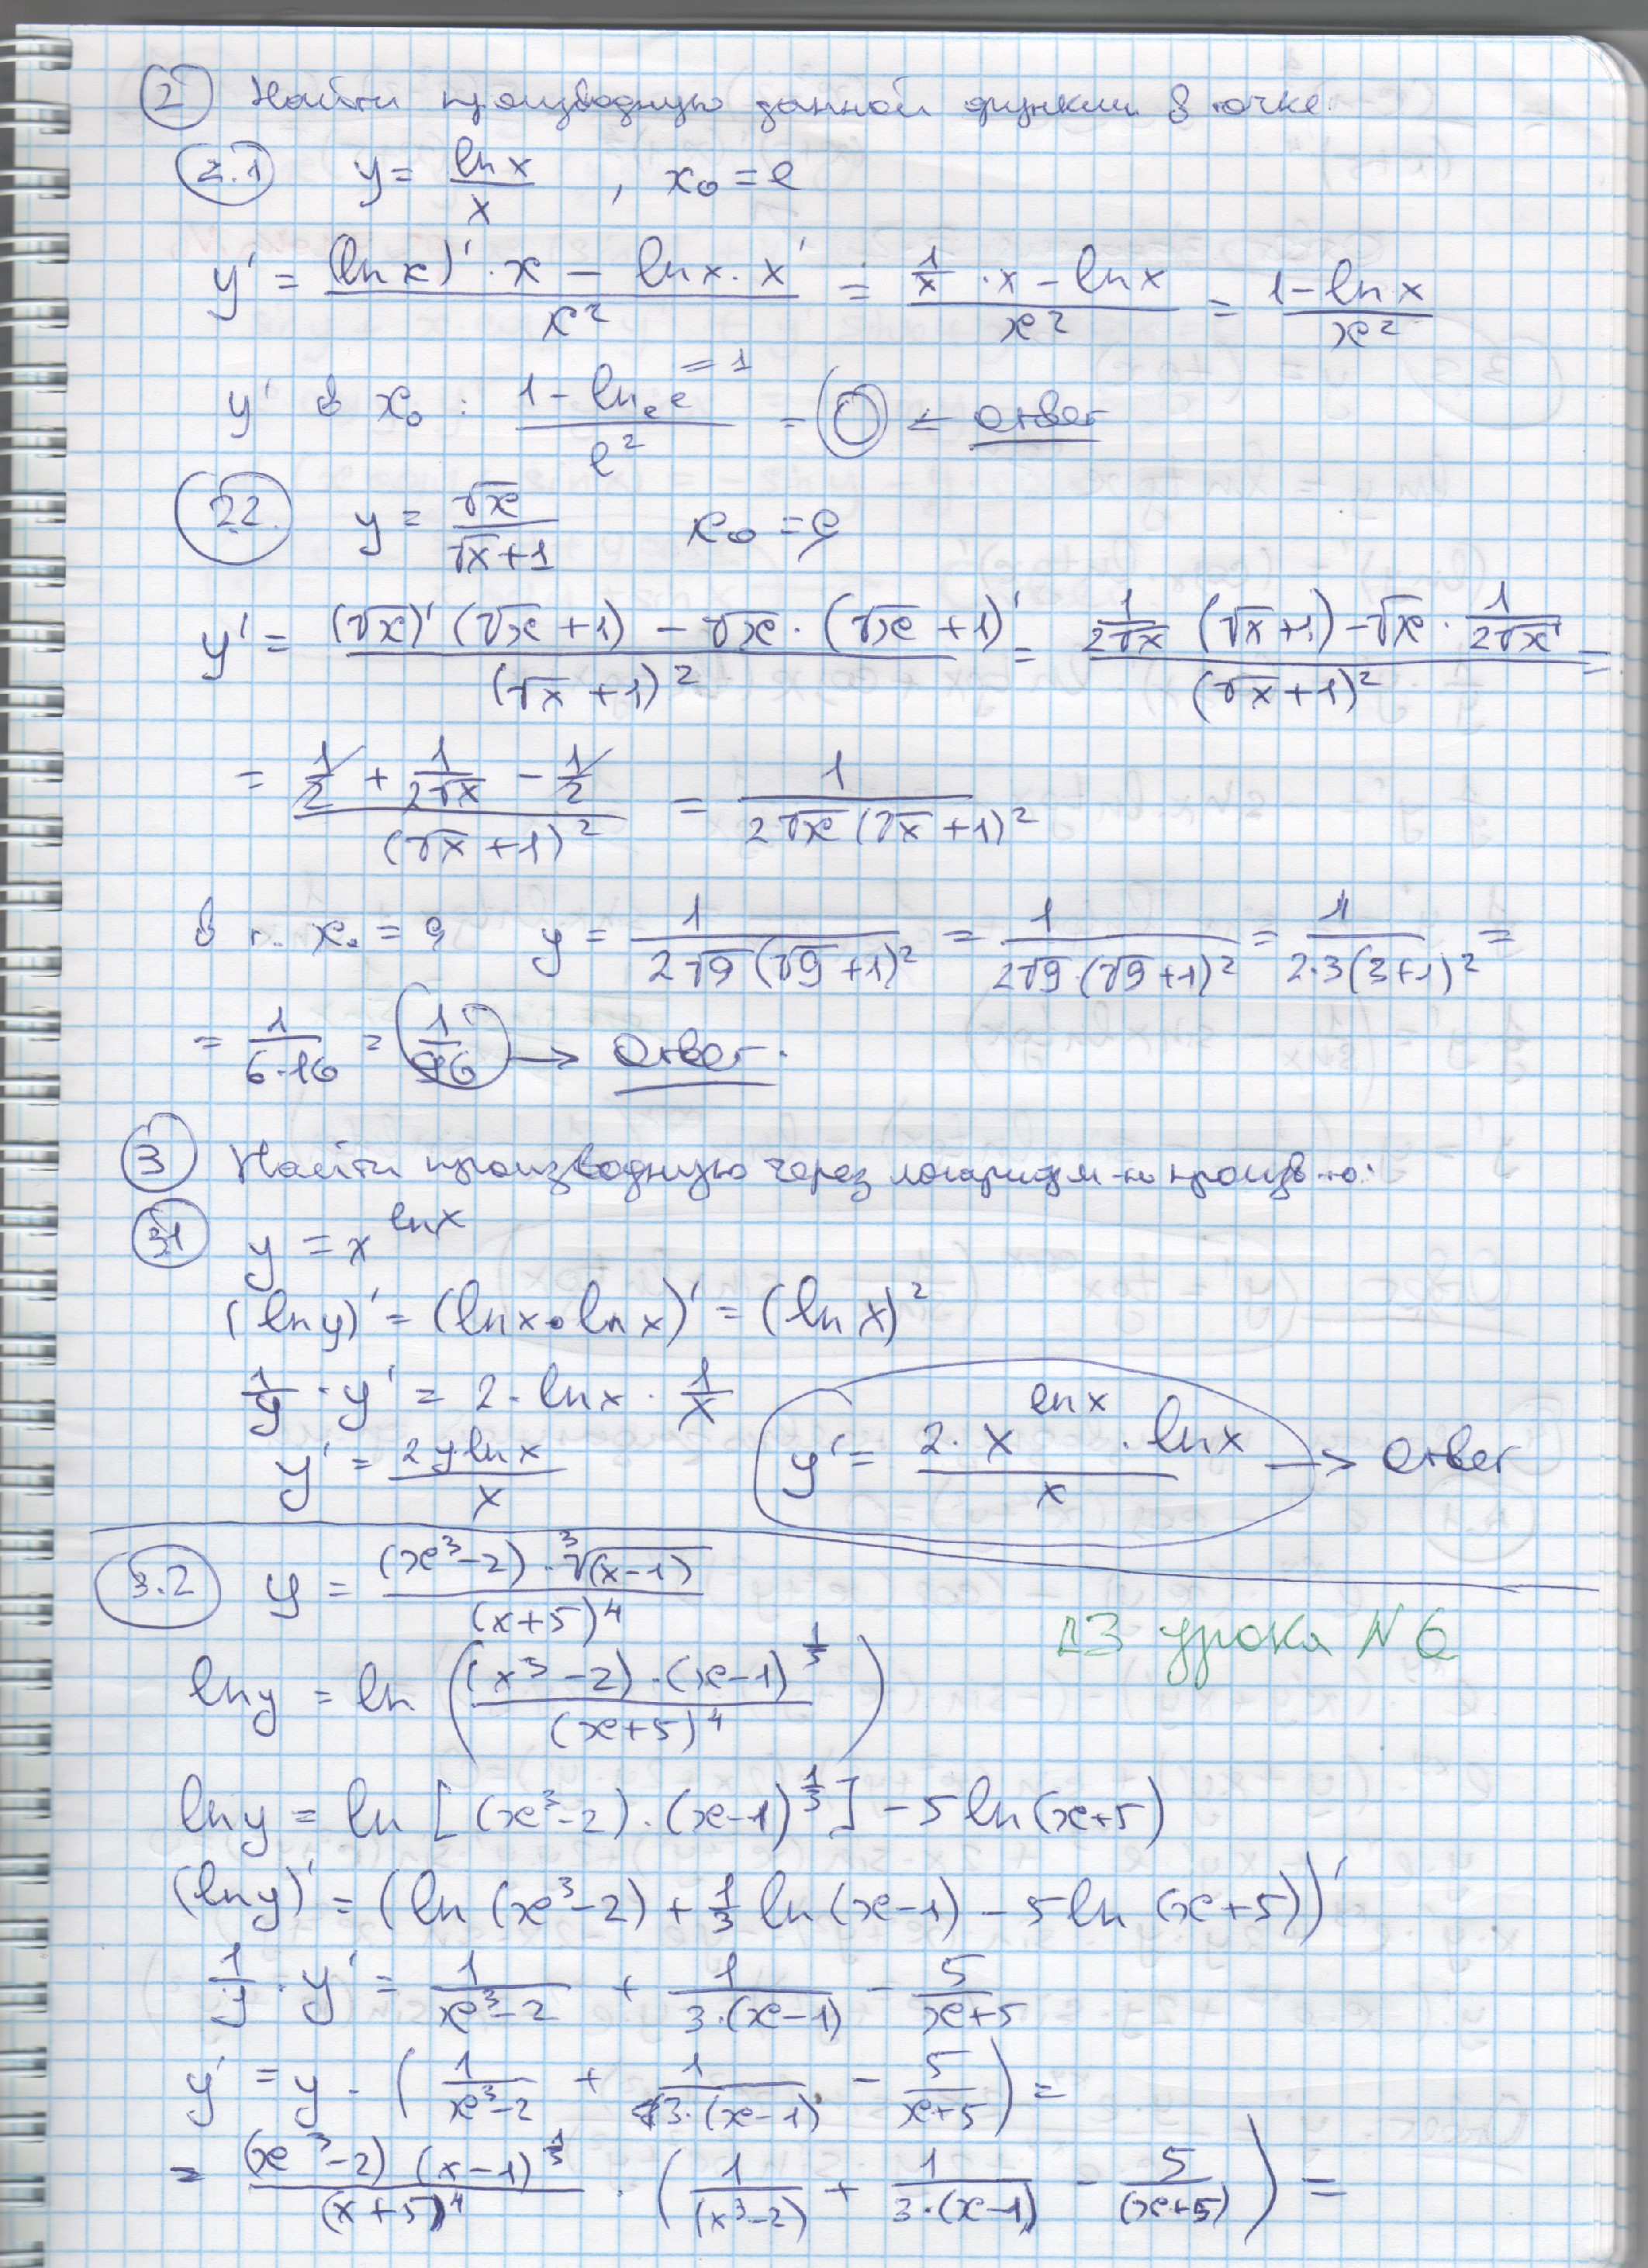 2 Найти производную данной функции в точке:
2.1 y = ln x / x , x₀ = e
y' = ((ln x)' · x − ln x · x') / x² = (1/x · x − ln x) / x² = (1 − ln x) / x²
y' в x₀ : (1 − lnₑ e = 1) / e² = 0 ← ответ
2.2. y = √x / (√x + 1) x₀ = 9
y' = ((√x)' (√x + 1) − √x · (√x + 1)') / (√x + 1)² = (1/(2√x) (√x + 1) − √x · 1/(2√x)) / (√x + 1)² =
= (1/2 + 1/(2√x) − 1/2) / (√x + 1)² = 1 / (2√x (√x + 1)²)
в т. x₀ = 9 y = 1 / (2√9 (√9 + 1)²) = 1 / (2√9 · (√9 + 1)²) = 1 / (2·3(3+1)²) =
= 1 / (6·16) = 1/96 → Ответ.
3 Найти производную через логарифм-ю произв-ю:
3.1 y = x^(ln x)
(ln y)' = (ln x · ln x)' = (ln x)²
1/y · y' = 2 · ln x · 1/x
y' = 2y ln x / x y' = 2 · x^(ln x) · ln x / x → Ответ
3.2 y = (x³ − 2) · ³√(x − 1) / (x + 5)⁴
ДЗ урока N6
ln y = ln ((x³ − 2) · (x − 1)^(1/3) / (x + 5)⁴)
ln y = ln [(x³ − 2) · (x − 1)^(1/3)] − 5 ln (x + 5)
(ln y)' = (ln (x³ − 2) + 1/3 ln (x − 1) − 5 ln (x + 5))'
1/y · y' = 1/(x³ − 2) + 1/(3·(x − 1)) − 5/(x + 5)
y' = y · (1/(x³ − 2) + 1/(3·(x − 1)) − 5/(x + 5)) =
= (x³ − 2) (x − 1)^(1/3) / (x + 5)⁴ · (1/(x³ − 2) + 1/(3·(x − 1)) − 5/(x + 5)) =